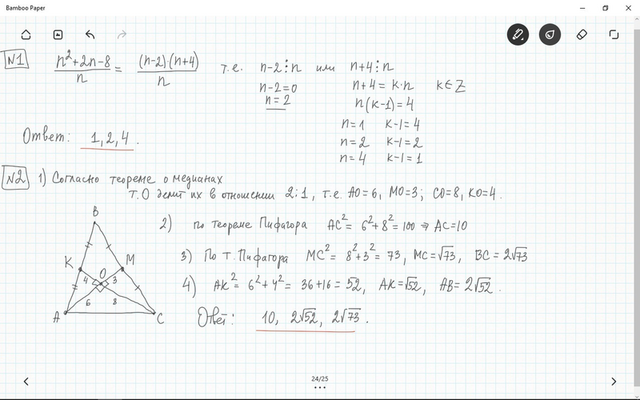 Bamboo Paper
N1 (n²+2n-8)/n = (n-2)·(n+4)/n т.е. n-2⋮n или n+4⋮n
n-2=0 n+4=k·n k∈Z
n=2 n(k-1)=4
n=1 k-1=4
n=2 k-1=2
n=4 k-1=1
Ответ: 1,2,4.
N2 1) Согласно теореме о медианах
т.О делит их в отношении 2:1, т.е. AO=6, MO=3; CO=8, KO=4.
2) по теореме Пифагора AC²=6²+8²=100 → AC=10
3) По т. Пифагора MC²=8²+3²=73, MC=√73, BC=2√73
4) AK²=6²+4²=36+16=52, AK=√52, AB=2√52.
Ответ: 10, 2√52, 2√73.
B
K O M
4 3
6 8
A C
24/25